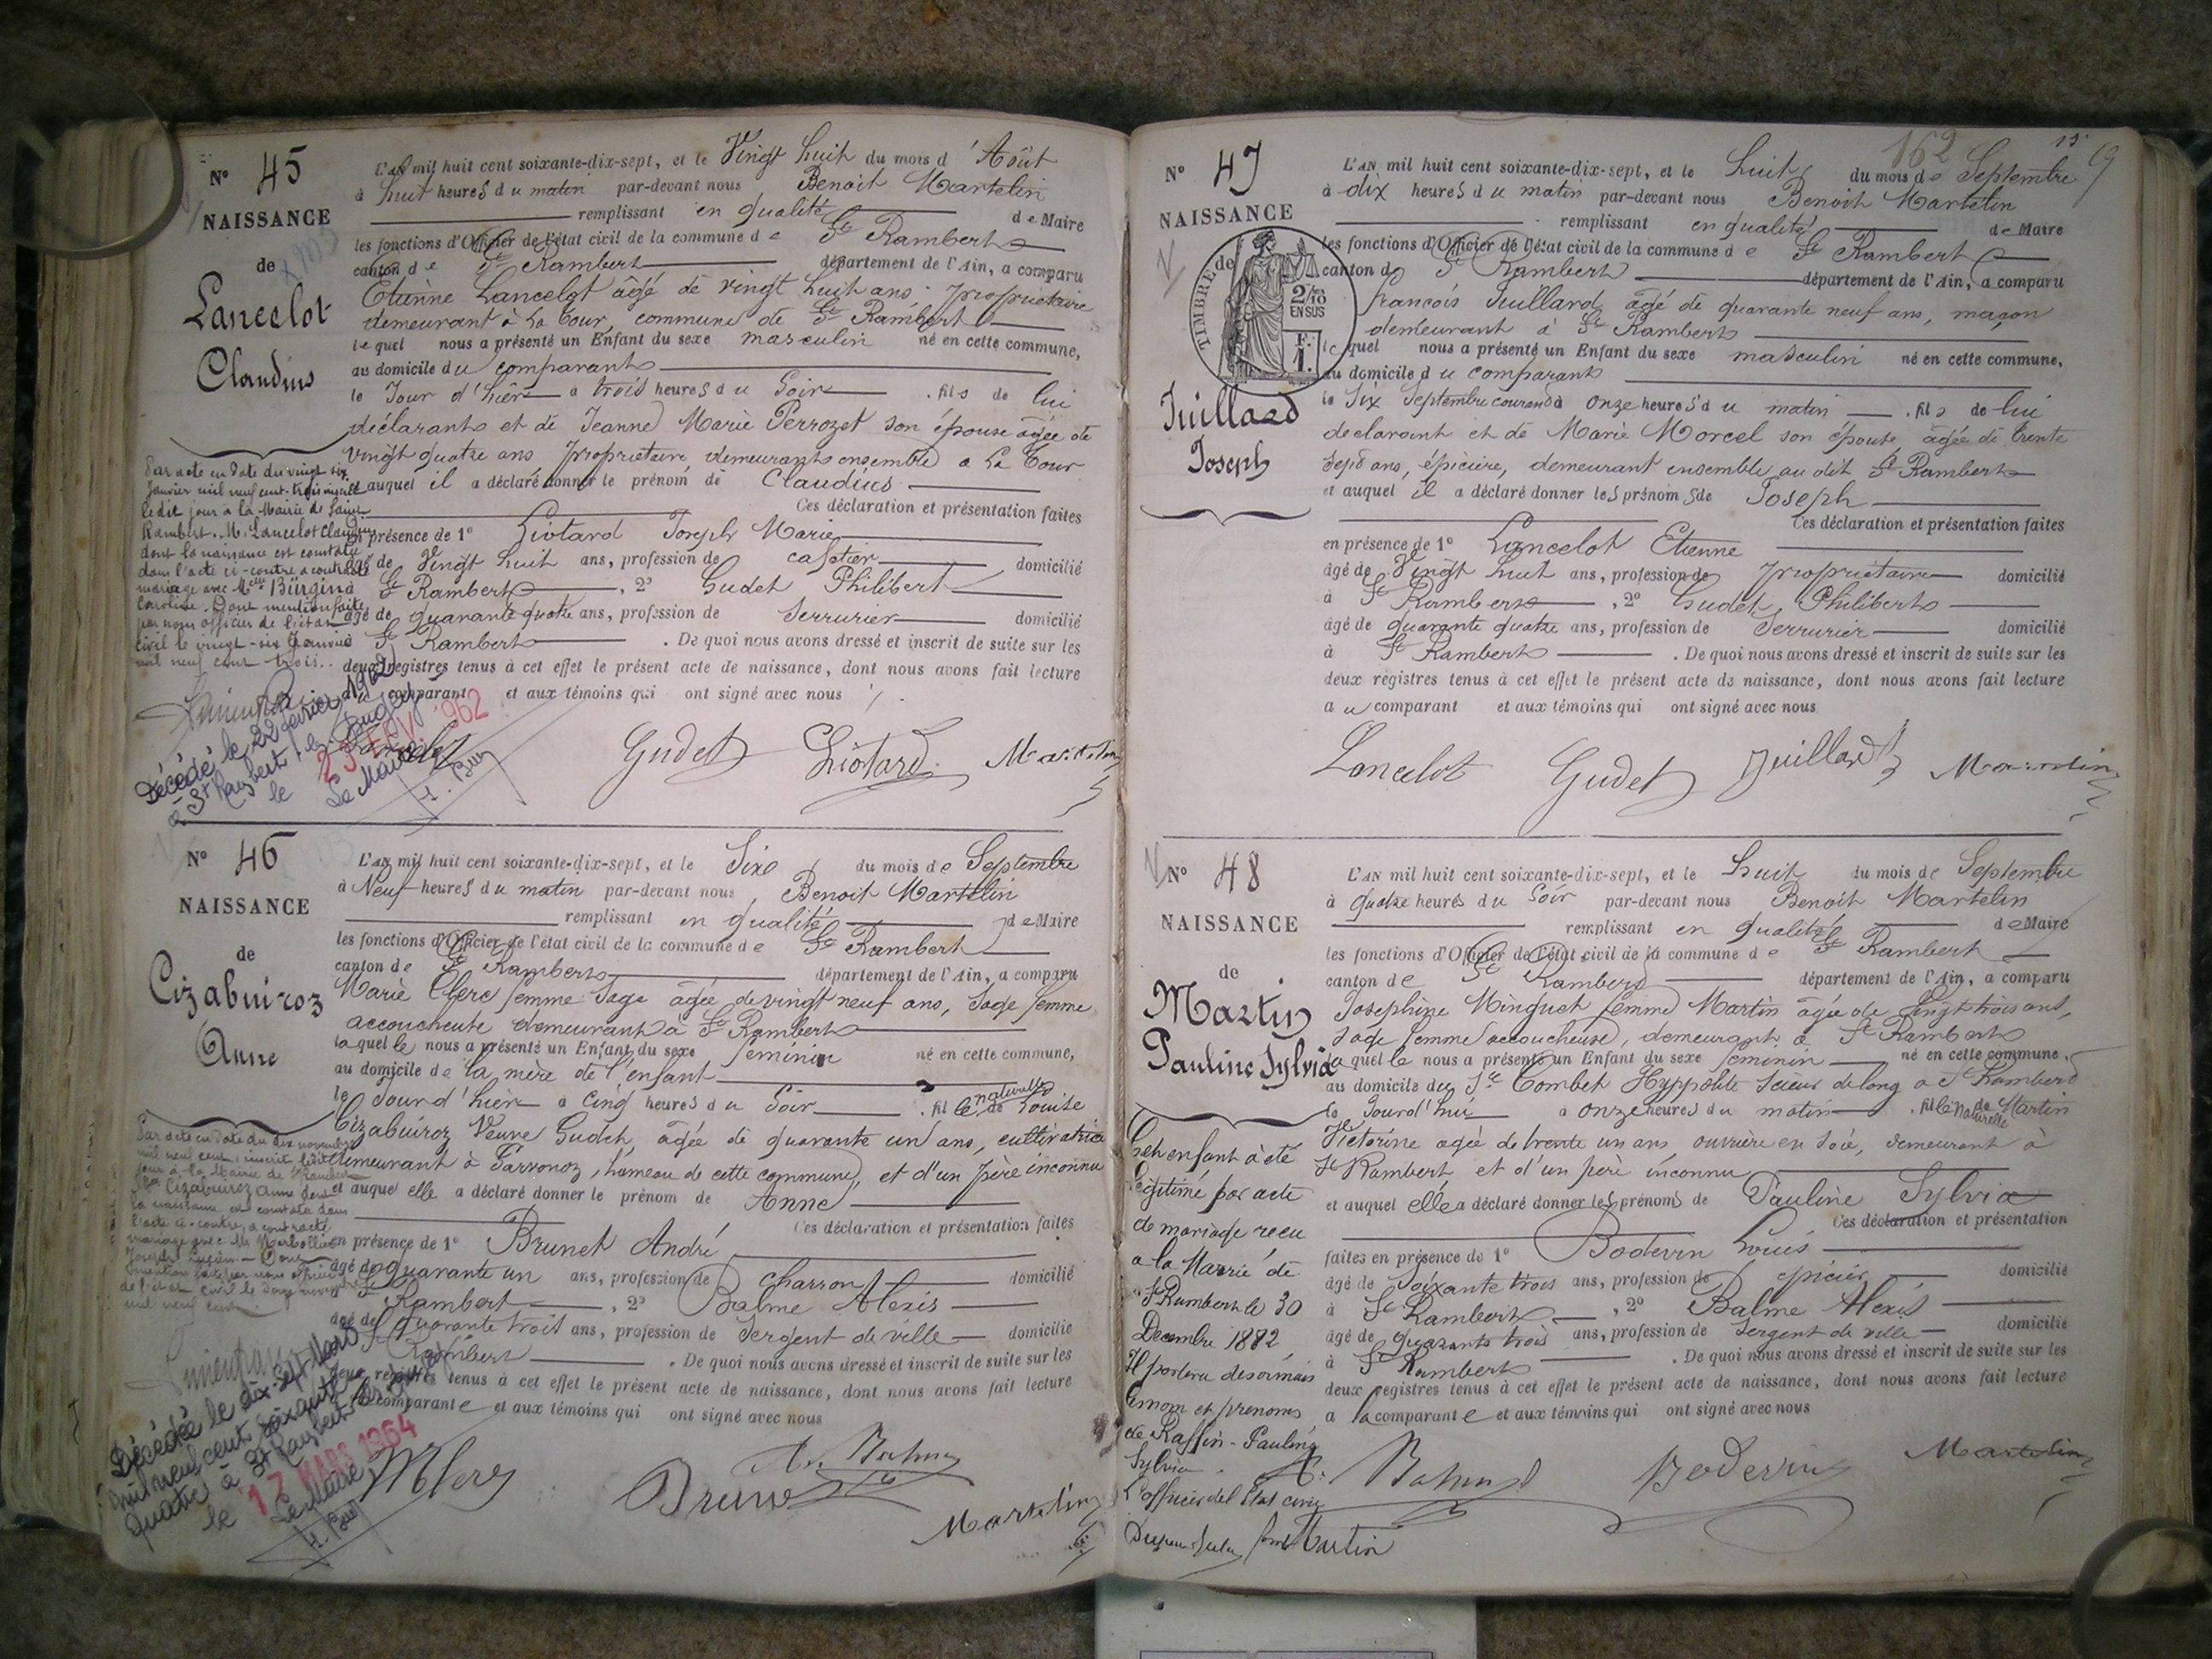 N° 45
NAISSANCE
de
Lancelot
Claudius
L'AN mil huit cent soixante-dix-sept, et le Vingt huit du mois d'Août
à huit heures du matin par-devant nous Benoit Martelin
remplissant en qualité de Maire
les fonctions d'Officier de l'état civil de la commune de St Rambert
canton de St Rambert département de l'Ain, a comparu
Etienne Lancelot âgé de vingt huit ans propriétaire
demeurant à La Tour, commune de St Rambert
lequel nous a présenté un Enfant du sexe masculin né en cette commune,
au domicile du comparant
le Jour d'hier à trois heures du Soir fils de lui
déclarant et de Jeanne Marie Perrozet son épouse agée de
vingt quatre ans propriétaire demeurants ensemble à La Tour
et auquel il a déclaré donner le prénom de Claudius
Ces déclaration et présentation faites
en présence de 1° Liotard Joseph Marie
âgé de Vingt huit ans, profession de cafetier domicilié
St Rambert, 2° Gudet Philibert
âgé de quarante quatre ans, profession de Serrurier domicilié
à St Rambert. De quoi nous avons dressé et inscrit de suite sur les
deux registres tenus à cet effet le présent acte de naissance, dont nous avons fait lecture
comparant et aux témoins qui ont signé avec nous
Gudet Liotard Martelin
Par acte en date du vingt six
Janvier mil neuf cent trois inscrit
ledit jour à la Mairie de Saint
Rambert. M. Lancelot Claudius
dont la naissance est constatée
dans l'acte ci-contre a contracté
mariage avec Melle Bürgind
Caroline. Dont mention faite
par nous officier de l'état
civil le vingt-six Janvier
mil neuf cent trois.
Décédé le 22 février 1962
à St Rambert
le 23 FEV. 1962
Le Maire
N° 46
NAISSANCE
de
Cizabuiroz
Anne
L'AN mil huit cent soixante-dix-sept, et le Six du mois de Septembre
à Neuf heures du matin par-devant nous Benoit Martelin
remplissant en qualité de Maire
les fonctions d'Officier de l'état civil de la commune de St Rambert
canton de St Rambert département de l'Ain, a comparu
Marie Clerc femme Sage agée de vingt neuf ans, Sage femme
accoucheuse demeurant à St Rambert
laquelle nous a présenté un Enfant du sexe féminin né en cette commune,
au domicile de la mère de l'enfant
le Jour d'hier à Cinq heures du Soir fille naturelle de Louise
Cizabuiroz Veuve Gudet, agée de quarante un ans, cultivatrice
demeurant à Javronoz, hameau de cette commune, et d'un père inconnu
et auquel elle a déclaré donner le prénom de Anne
Ces déclaration et présentation faites
en présence de 1° Brunet André
âgé de quarante un ans, profession de Charron domicilié
Rambert, 2° Balme Alexis
âgé de quarante trois ans, profession de Sergent de ville domicilié
Rambert. De quoi nous avons dressé et inscrit de suite sur les
deux registres tenus à cet effet le présent acte de naissance, dont nous avons fait lecture
comparante et aux témoins qui ont signé avec nous
M Clerc Brunet A. Balme Martelin
Par acte en date du dix novembre
mil neuf cent, inscrit ledit
jour à la Mairie de St Rambert
Cizabuiroz Anne dont
la naissance est constatée dans
l'acte ci-contre, a contracté
mariage avec
Décédée le dix-sept Mars
mil neuf cent soixante
quatre à St Rambert
le 17 MARS 1964
Le Maire
162
N° 47
NAISSANCE
de
TIMBRE
2/10
EN SUS
1 F.
Juillard
Joseph
L'AN mil huit cent soixante-dix-sept, et le huit du mois de Septembre
à dix heures du matin par-devant nous Benoit Martelin
remplissant en qualité de Maire
les fonctions d'Officier de l'état civil de la commune de St Rambert
canton de St Rambert département de l'Ain, a comparu
François Juillard agé de quarante neuf ans, maçon
demeurant à St Rambert
lequel nous a présenté un Enfant du sexe masculin né en cette commune,
au domicile du comparant
le Six Septembre courant à onze heures du matin fils de lui
declarant et de Marie Morcel son épouse agée de trente
sept ans, épicière, demeurant ensemble au dit St Rambert
et auquel il a déclaré donner les prénoms de Joseph
Ces déclaration et présentation faites
en présence de 1° Lancelot Etienne
âgé de Vingt huit ans, profession de propriétaire domicilié
à St Rambert, 2° Gudet Philibert
âgé de quarante quatre ans, profession de Serrurier domicilié
à St Rambert. De quoi nous avons dressé et inscrit de suite sur les
deux registres tenus à cet effet le présent acte de naissance, dont nous avons fait lecture
au comparant et aux témoins qui ont signé avec nous
Lancelot Gudet Juillard Martelin
N° 48
NAISSANCE
de
Martin
Pauline Sylvia
L'AN mil huit cent soixante-dix-sept, et le huit du mois de Septembre
à quatre heures du Soir par-devant nous Benoit Martelin
remplissant en qualité de Maire
les fonctions d'Officier de l'état civil de la commune de St Rambert
canton de St Rambert département de l'Ain, a comparu
Josephine Minguet femme Martin agée de Vingt trois ans,
Sage femme accoucheuse, demeurant à St Rambert
laquelle nous a présenté un Enfant du sexe féminin né en cette commune,
au domicile du Sr Combet Hyppolite Scieur de long à St Rambert
le Jourd'hui à onze heures du matin fille Naturelle de Martin
Victorine agée de trente un ans ouvrière en soie, demeurant à
St Rambert, et d'un père inconnu
et auquel elle a déclaré donner les prénoms de Pauline Sylvia
Ces déclaration et présentation
faites en présence de 1° Bodevin Louis
âgé de Soixante trois ans, profession de épicier domicilié
à St Rambert, 2° Balme Alexis
âgé de quarante trois ans, profession de Sergent de ville domicilié
à St Rambert. De quoi nous avons dressé et inscrit de suite sur les
deux registres tenus à cet effet le présent acte de naissance, dont nous avons fait lecture
a la comparante et aux témoins qui ont signé avec nous
A. Balme Bodevin Martelin
fme Martin
Cet enfant à été
légitimé par acte
de mariage recu
a la Mairie de
St Rambert le 30
Decembre 1882
Il portera desormais
le nom et prenoms
de Raffin-Pauline
Sylvia
L'officier de l'état civil